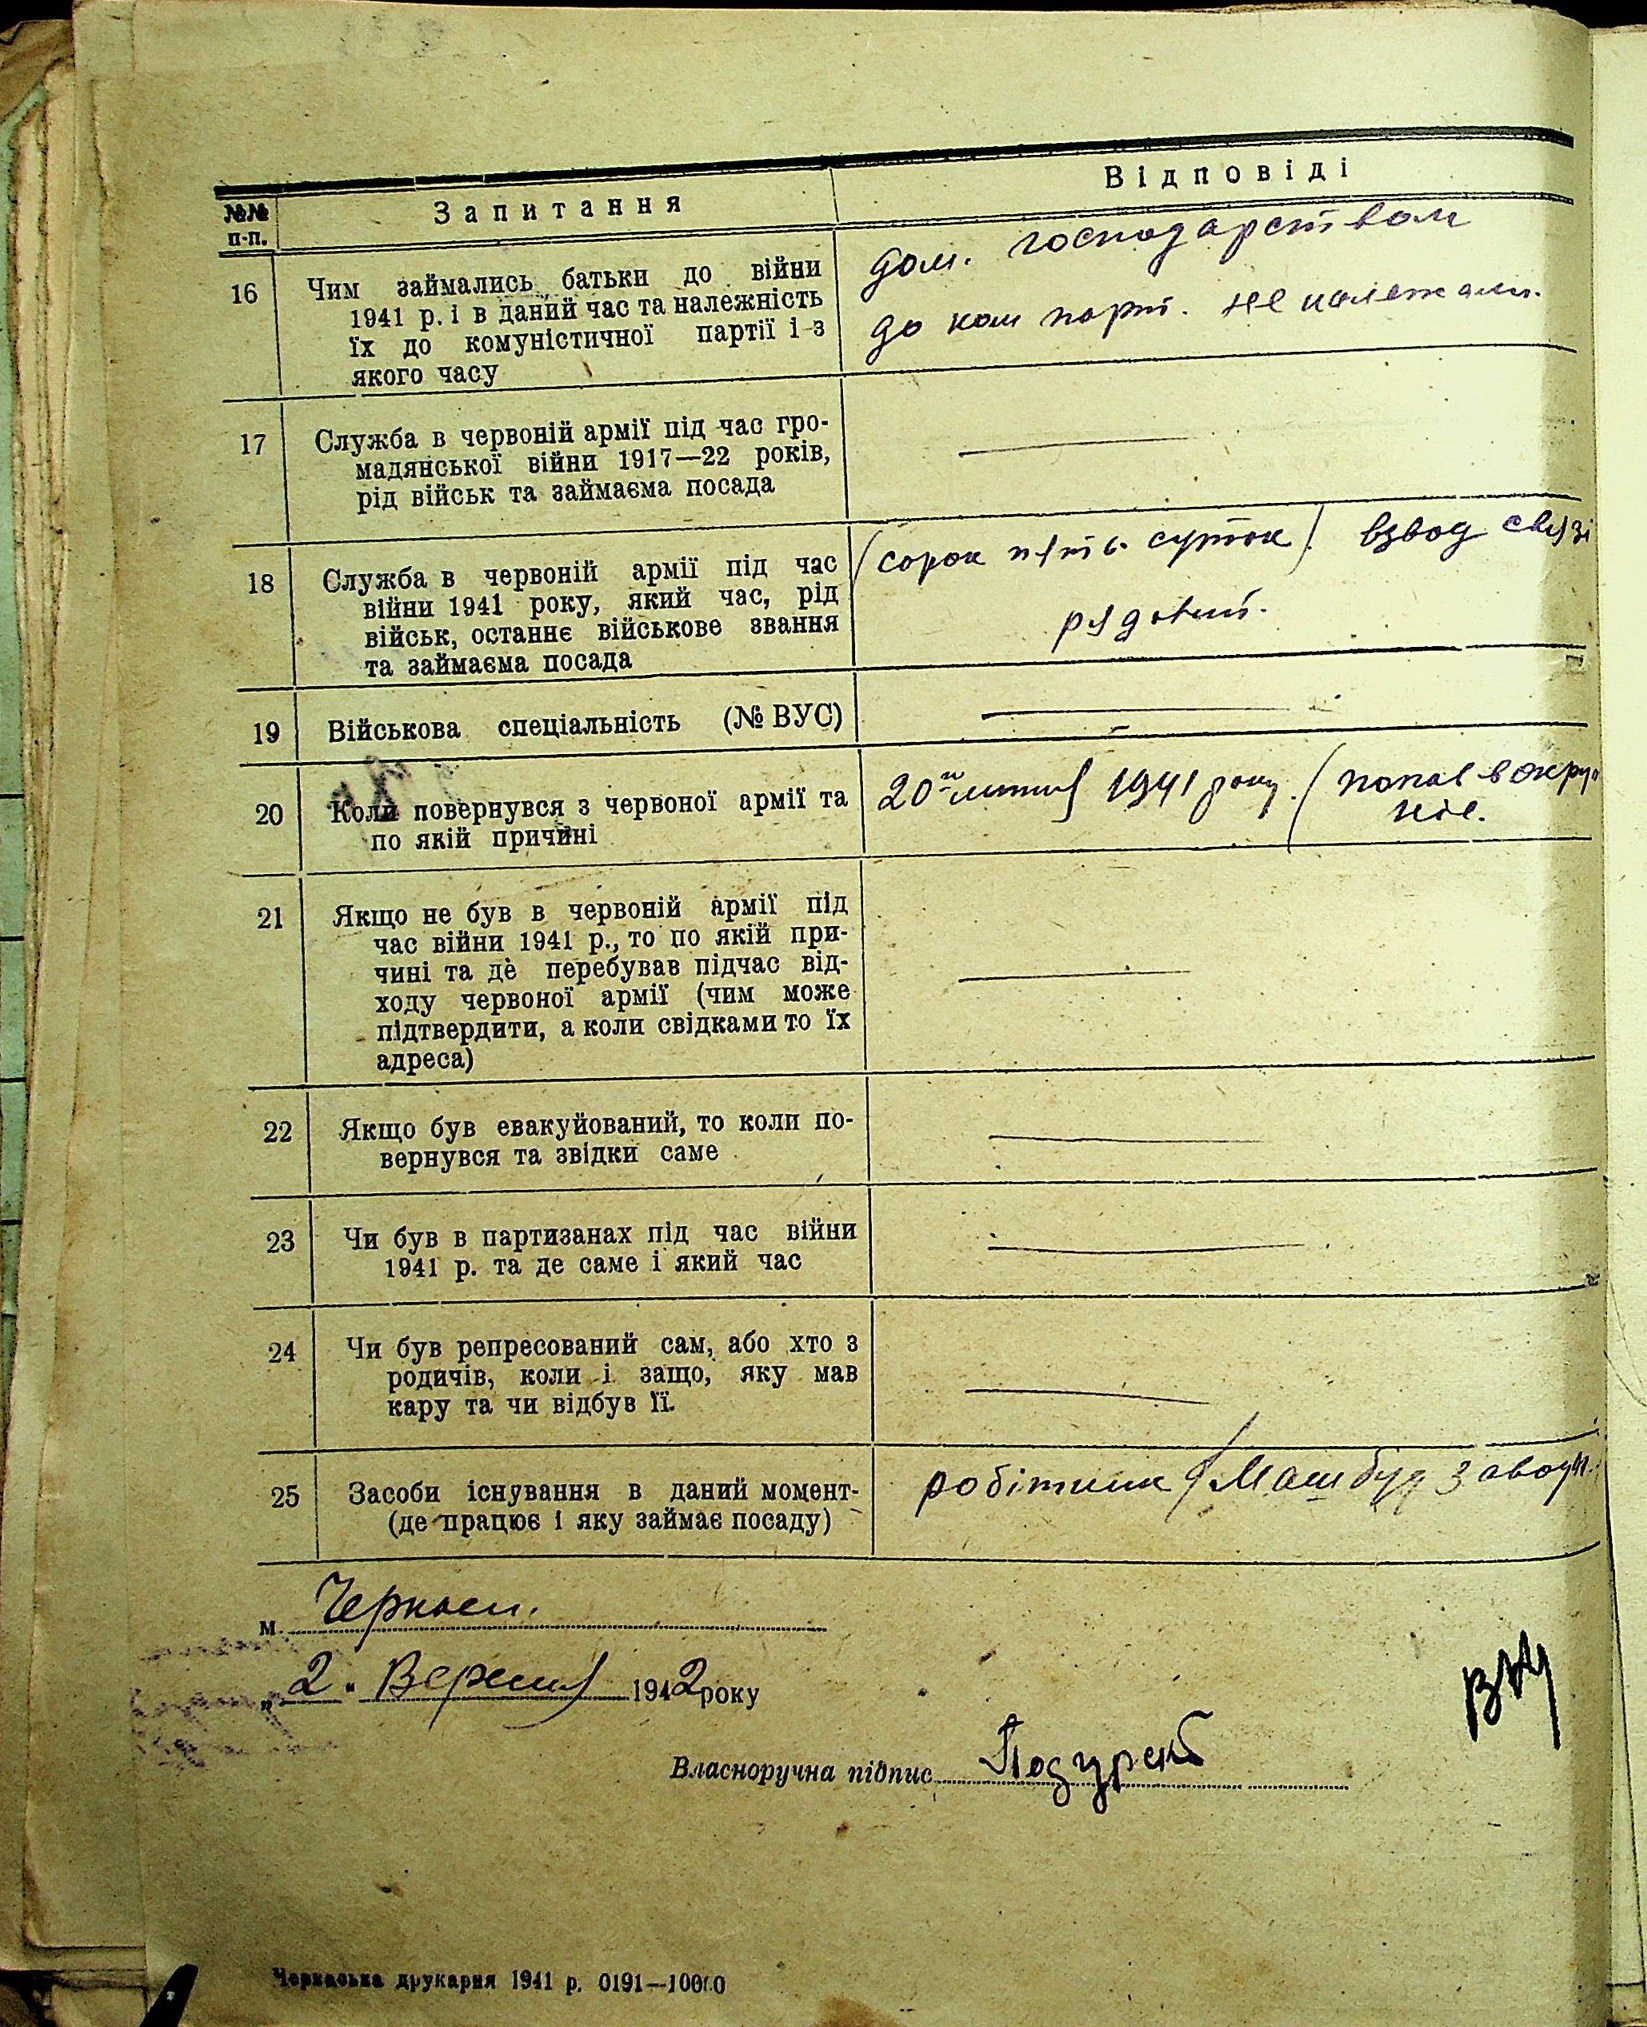 №№ п-п.
Запитання
Відповіді
16
Чим займались батьки до війни
1941 р. і в даний час та належність
їх до комуністичної партії і з
якого часу
дом. господарством
до ком парт. не належали.
17
Служба в червоній армії під час гро-
мадянської війни 1917—22 років,
рід військ та займаєма посада
18
Служба в червоній армії під час
війни 1941 року, який час, рід
військ, останнє військове звання
та займаєма посада
(сорок пять суток) взвод связі
рядовий.
19
Військова спеціальність (№ ВУС)
20
Коли повернувся з червоної армії та
по якій причині
1941 року. (попав в окру
21
Якщо не був в червоній армії під
час війни 1941 р., то по якій при-
чині та де перебував підчас від-
ходу червоної армії (чим може
підтвердити, а коли свідками то їх
адреса)
22
Якщо був евакуйований, то коли по-
вернувся та звідки саме
23
Чи був в партизанах під час війни
1941 р. та де саме і який час
24
Чи був репресований сам, або хто з
родичів, коли і защо, яку мав
кару та чи відбув її.
25
Засоби існування в даний момент-
(де працює і яку займає посаду)
робітник (Машбуд завод
м. Черкаси.
„2. Вересня 1942 року
Власноручна підпис
Черкаська друкарня 1941 р. 0191—10000